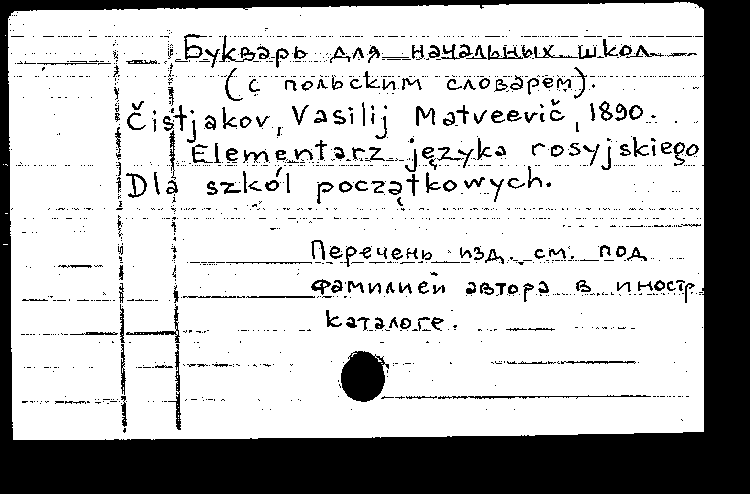 Букварь для начальных школ
(с польским словарем).
Čistjakov, Vasilij Matveevič, 1890.
Elementarz języka rosyjskiego
Dla szkól początkowych.
Перечень изд. см. под
фамилией автора в иностр.
каталоге.